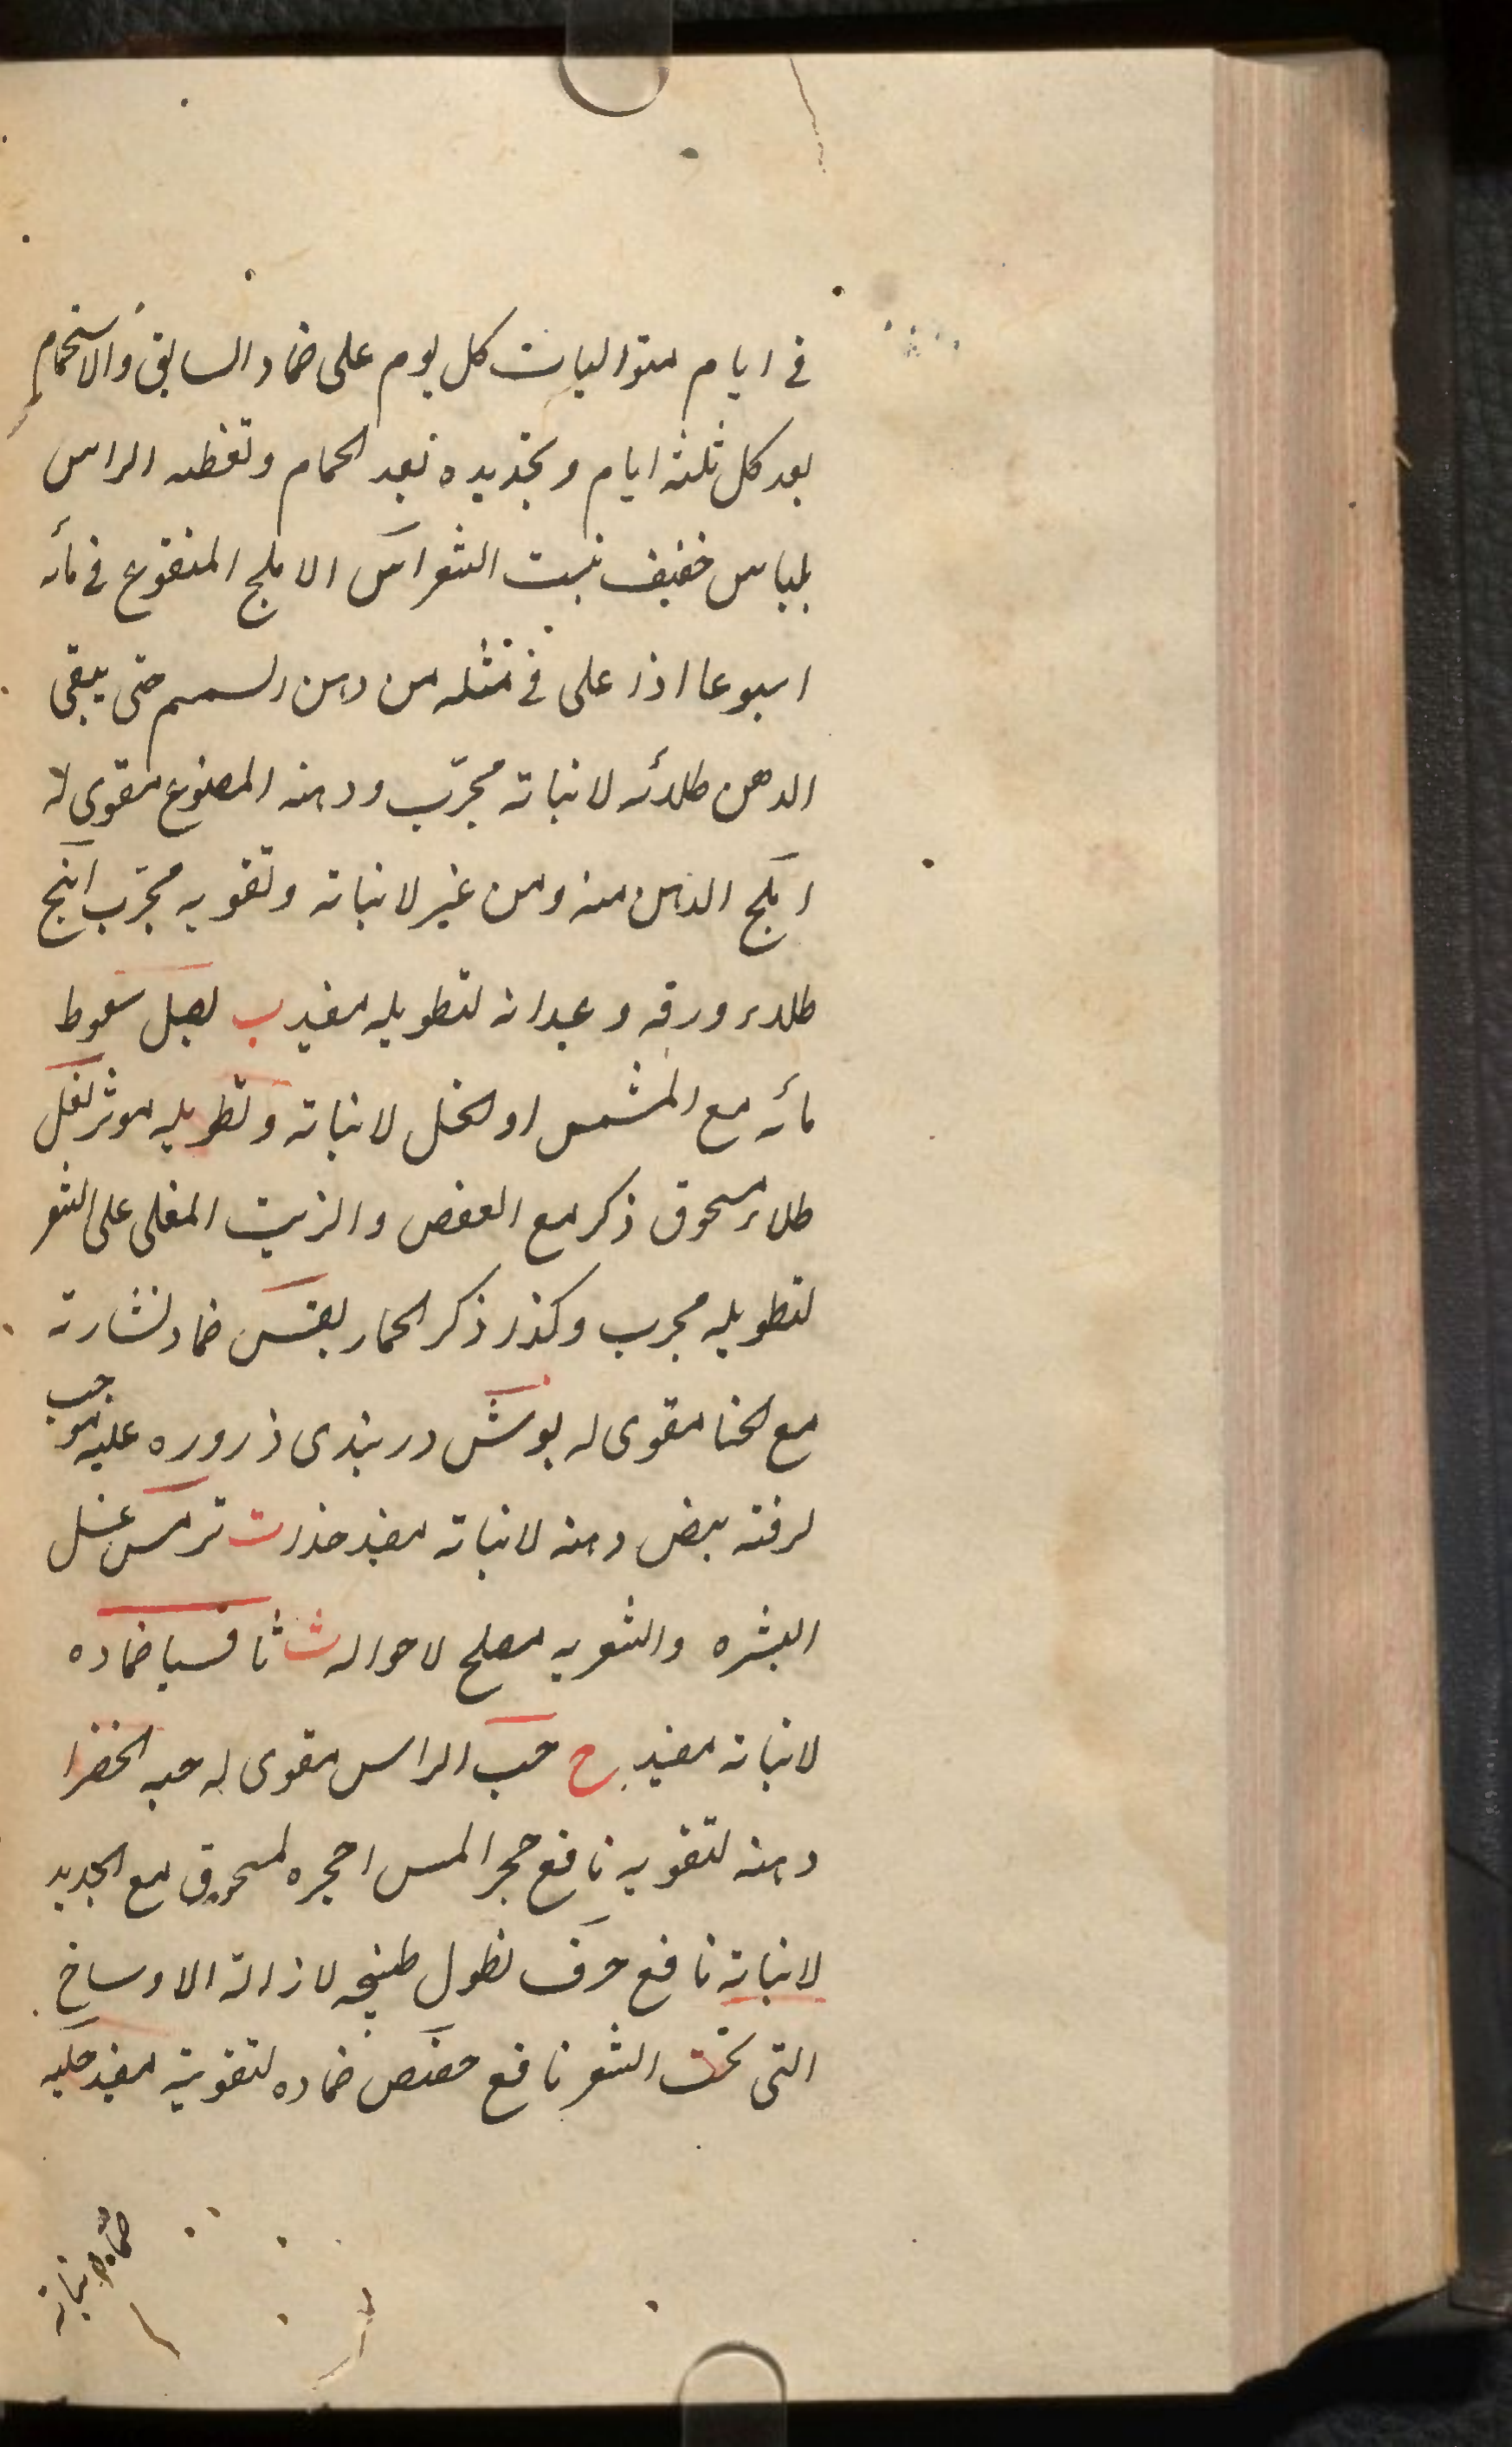 في ايام متواليات كل يوم على ضماد السابق والاستحمام
بعد كل ثلثة ايام وتجديده بعد الحمام وتغطيه الراس
بلباس خفيف ينبت الشعر اس الاملج المنقوع في مائه
اسبوعا اذا غلى في مثله من دهن السمسم حتى يبقى
الدهن طلائه لانباته مجرّب ودهنه المصنوع مقوى له
املج الدهن منه ومن غير لانباته وتقويه مجرّب
طلاء ورقه وعيدانه لتطويله مفيد ب بصل سعوط
مائه مع المشمس او الخل لانباته وتطويله موثر بغل
طلاء مسحوق ذكر مع العفص والزيت المغلى على الشعر
لتطويله مجرب وكذا ذكر الحمار بقس ضماد نشارته
مع الحنا مقوى له بوش دربندى ذروره عليه موجب
لرقته بيض دهنه لانباته مفيد ت ترمس غسل
البشره والشعر به مصلح لاحواله ث ثافسيا ضماده
لانباته مفيد ح حب الراس مقوى له حبه الخضرا
دهنه لتقويه نافع حجر المس مع الحديد
لانباته نافع حرف نطول طبيخه لازالة الاوساخ
التى تحت الشعر نافع حضض ضماده لتقويته مفيد حلبه
ضماده لانباته